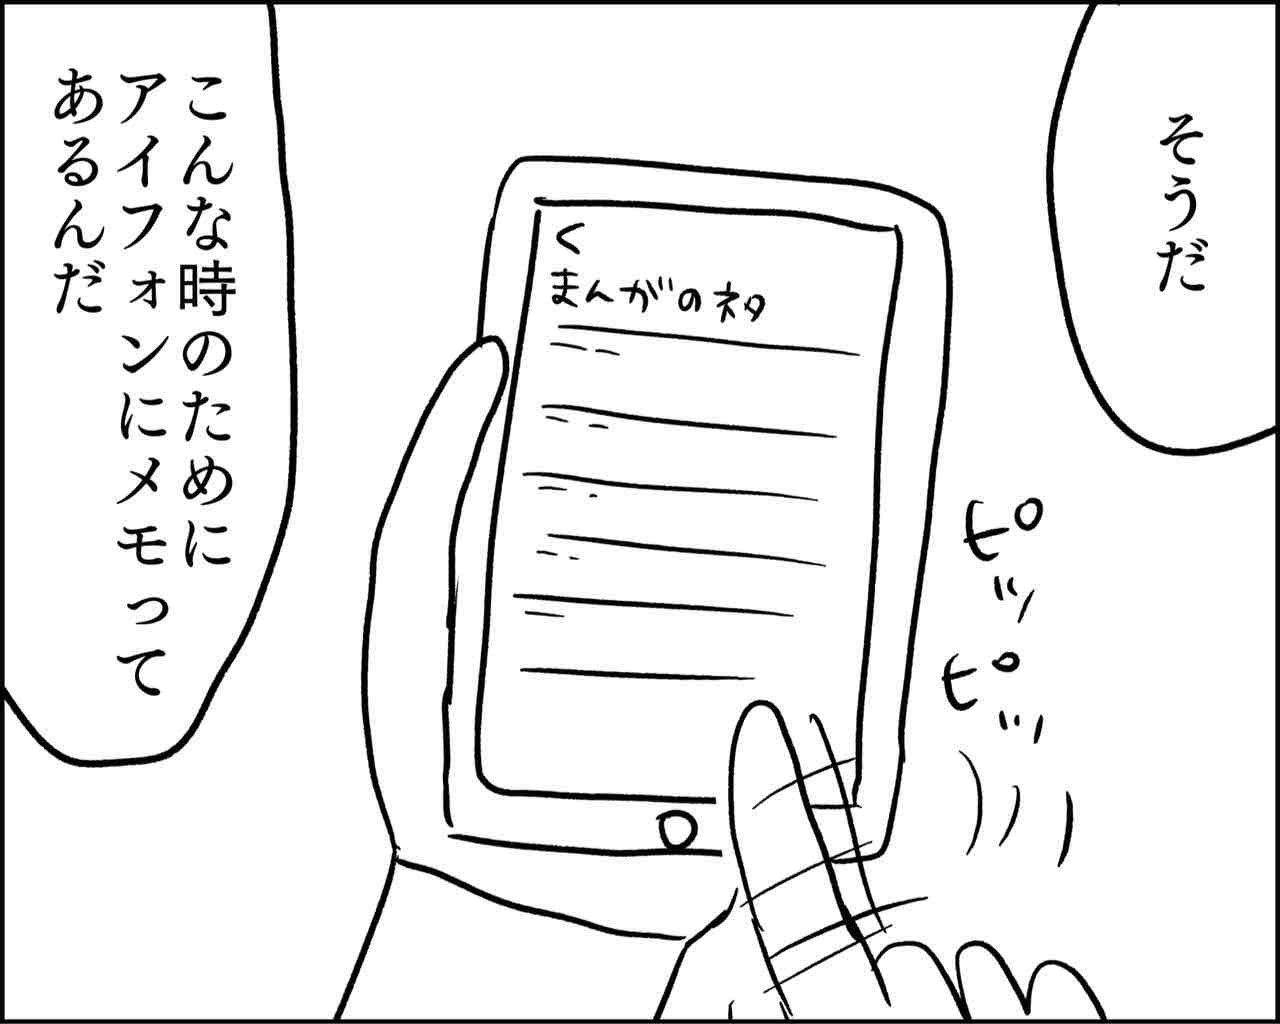 そうだ
こんな時のために
アイフォンにメモって
あるんだ
く
まんがのネタ
ピッ
ピッ